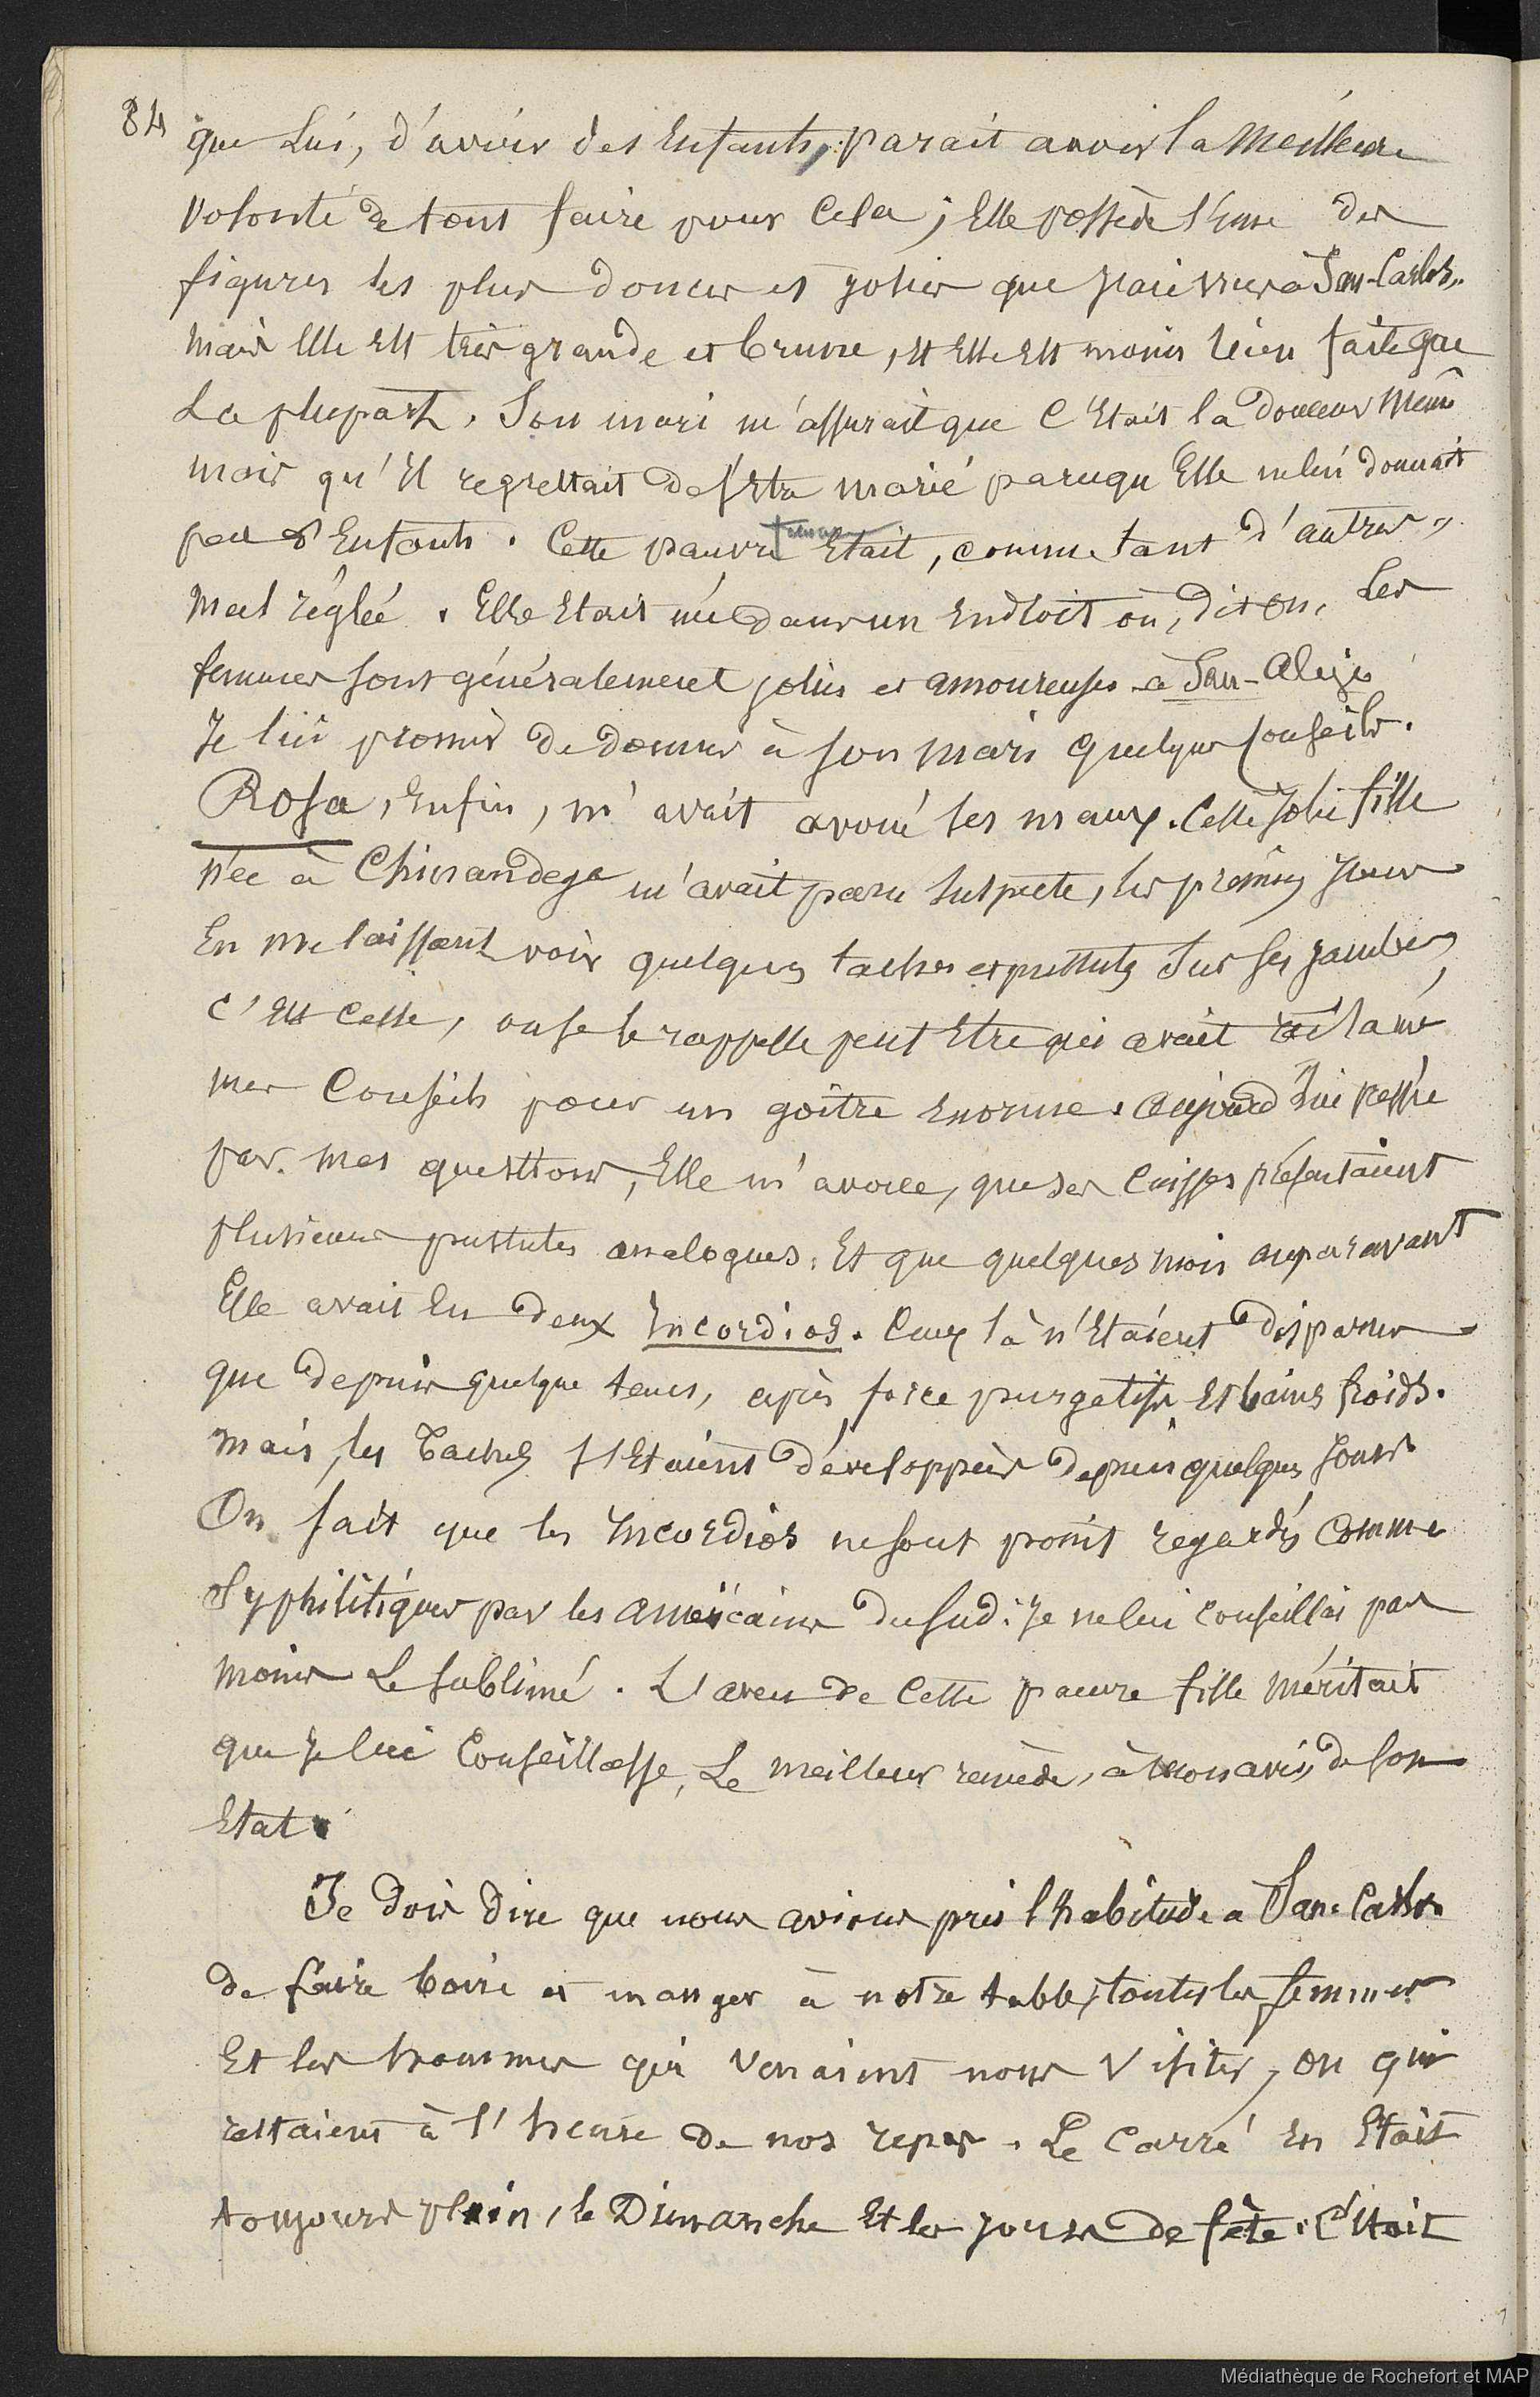 84
que lui, d'avoir des Enfants, parait avoir la Meilleure
volonté de tout faire pour cela ; Elle possède l'une des
figures les plus douces et jolies que j'aie vues à San-Carlos,
mais Elle est très grande et brune, et Elle est moins bien faite que
La plupart. Son mari m'assurait que c'Etait la douceur Même
mais qu'il regrettait de s'Etre marié parcequ'Elle ne lui donnait
pas d'Enfants. Cette pauvre femme Etait, comme tant d'autres,
mal réglée. Elle Etait née dans un Endroit où, dit on, Les
femmes sont généralement jolies et amoureuses à San-
Je lui promis de donner à son mari quelques conseils.
Rosa, Enfin, m'avait avoué ses maux. Cette Jolie fille
née à Chinandega m'avait paru suspecte, les premiers jours
En me laissant voir quelques taches et pustules sur ses jambes,
c'Est celle, on se le rappelle peut Etre qui avait réclamé
mes Conseils pour un goître Enorme. Aujourd'hui pressée
par mes questions, Elle m'avoue, que ses cuisses présentaient
plusieurs pustules analogues. Et que quelques mois auparavant
Elle avait Eu deux Incordios. Ceux là n'Etaient disparus
que depuis quelque tems, après force purgatifs Et bains froids.
Mais, les Taches s'Etaient développées depuis quelques Jours
On sait que les Incordios ne sont point regardés comme
Syphilitiques par les américains du Sud. Je ne lui conseillai pas
moins Le sublimé. L'aveu de Cette pauvre fille méritait
que je lui Conseillasse, Le meilleur remède, à mon avis, de son
Etat.
Je dois dire que nous avions pris l'habitude a San-Carlos
de faire boire et manger à notre table, toutes les femmes
Et les hommes qui venaient nous visiter, ou qui
restaient à l'heure de nos repas. Le Carré En Etait
toujours plein, le Dimanche Et les jours de fête. C'était
Médiathèque de Rochefort et MAP